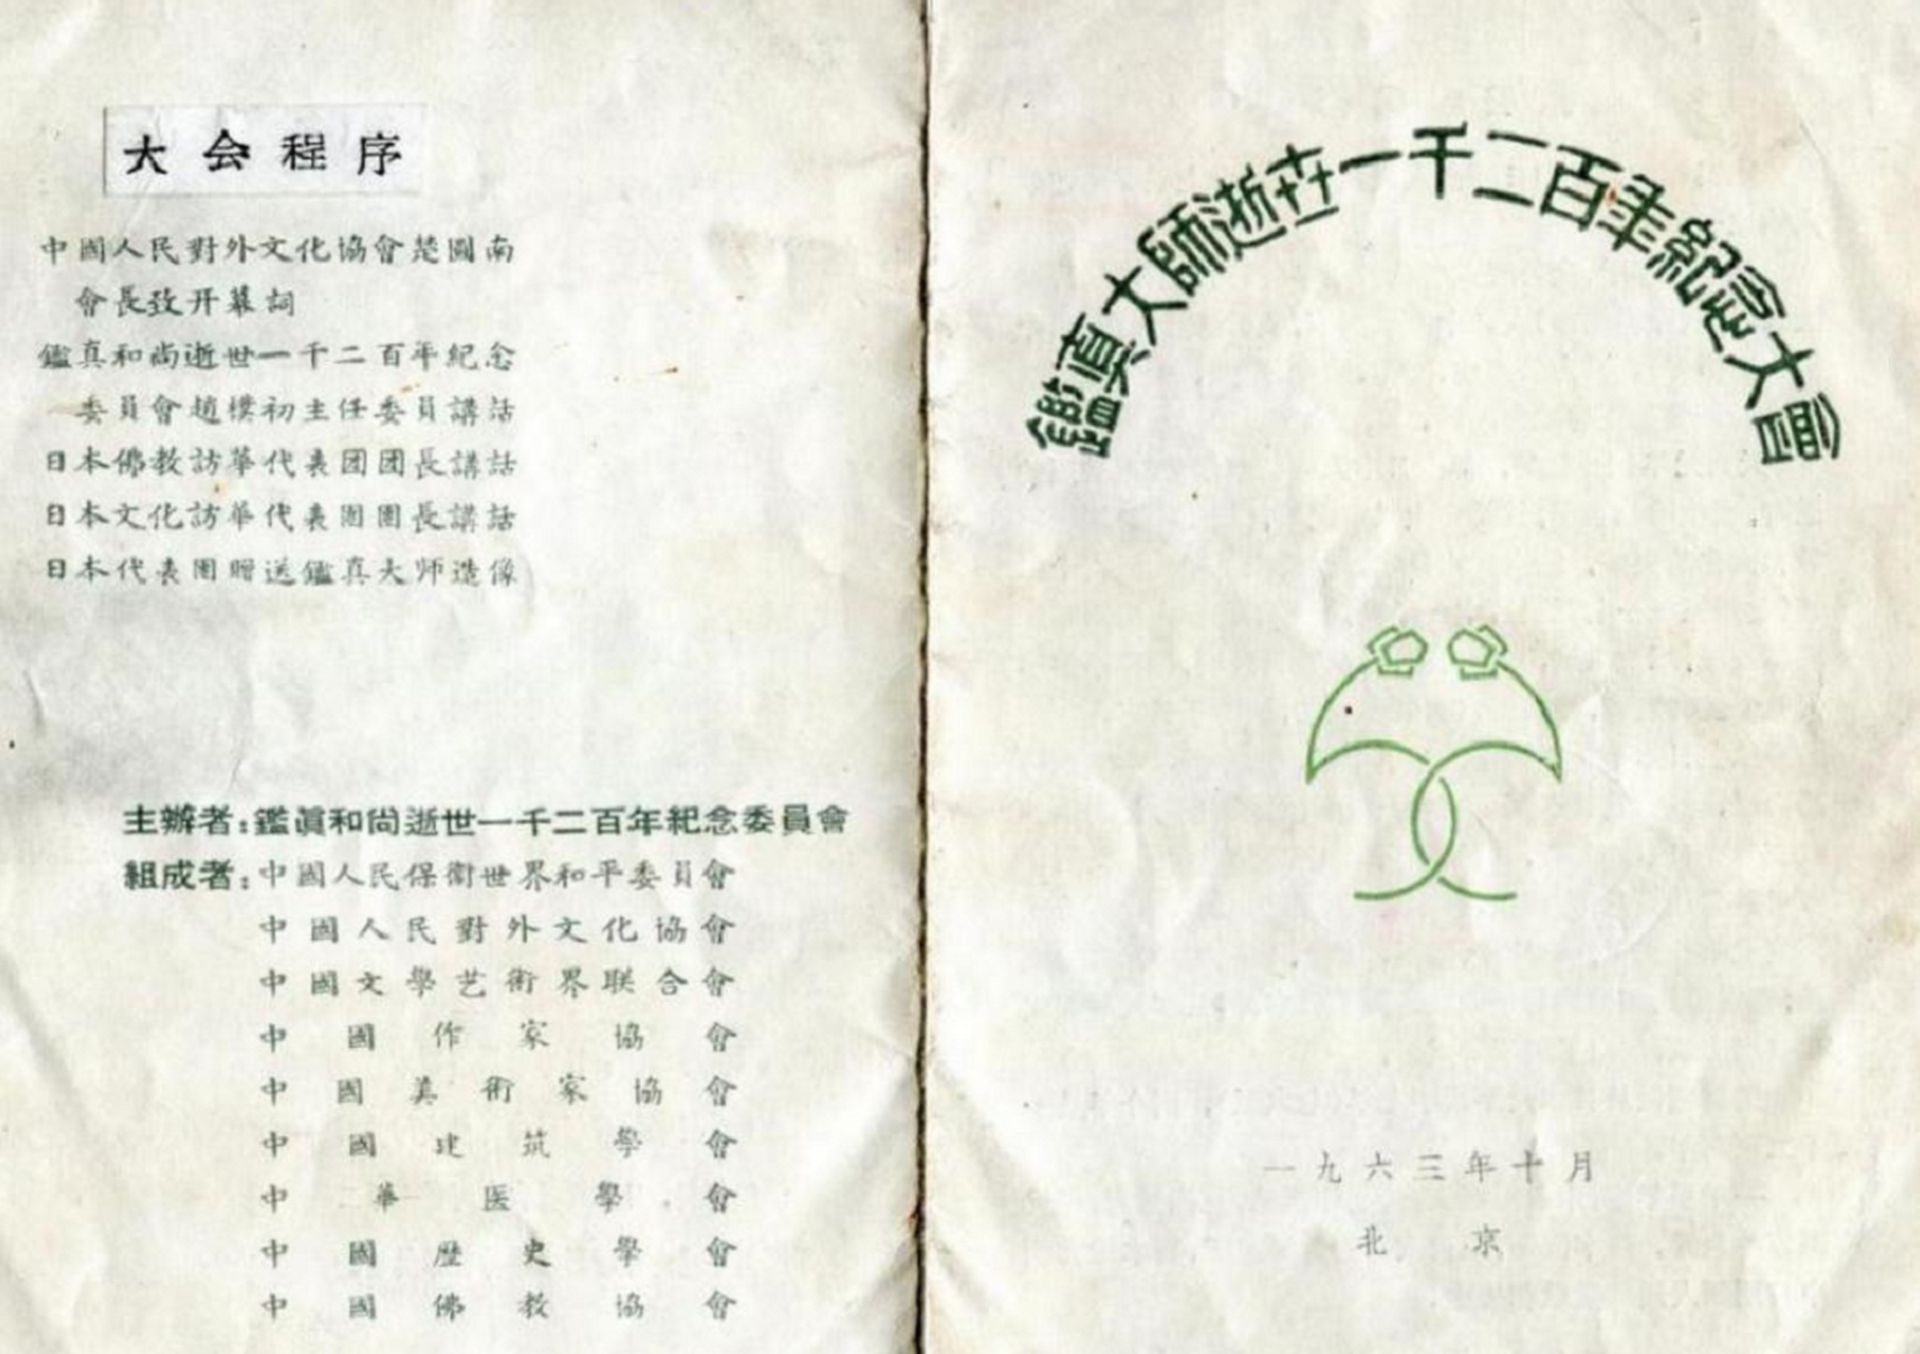 大会程序
中國人民對外文化協會楚圖南
會長致开幕詞
鑑真和尚逝世一千二百年紀念
委員會趙樸初主任委員講話
日本佛教訪華代表团團長講話
日本文化訪華代表團團長講話
日本代表團贈送鑑真大师造像
主辦者:鑑眞和尙逝世一千二百年紀念委員會
組成者:中國人民保衞世界和平委員會
中國人民對外文化協會
中國文學艺術界联合會
中國作家協會
中國美術家協會
中國建筑學會
中華医學會
中國歷史學會
中國佛教協會
鑑眞大師逝世一千二百年紀念大會
一九六三年十月
北京